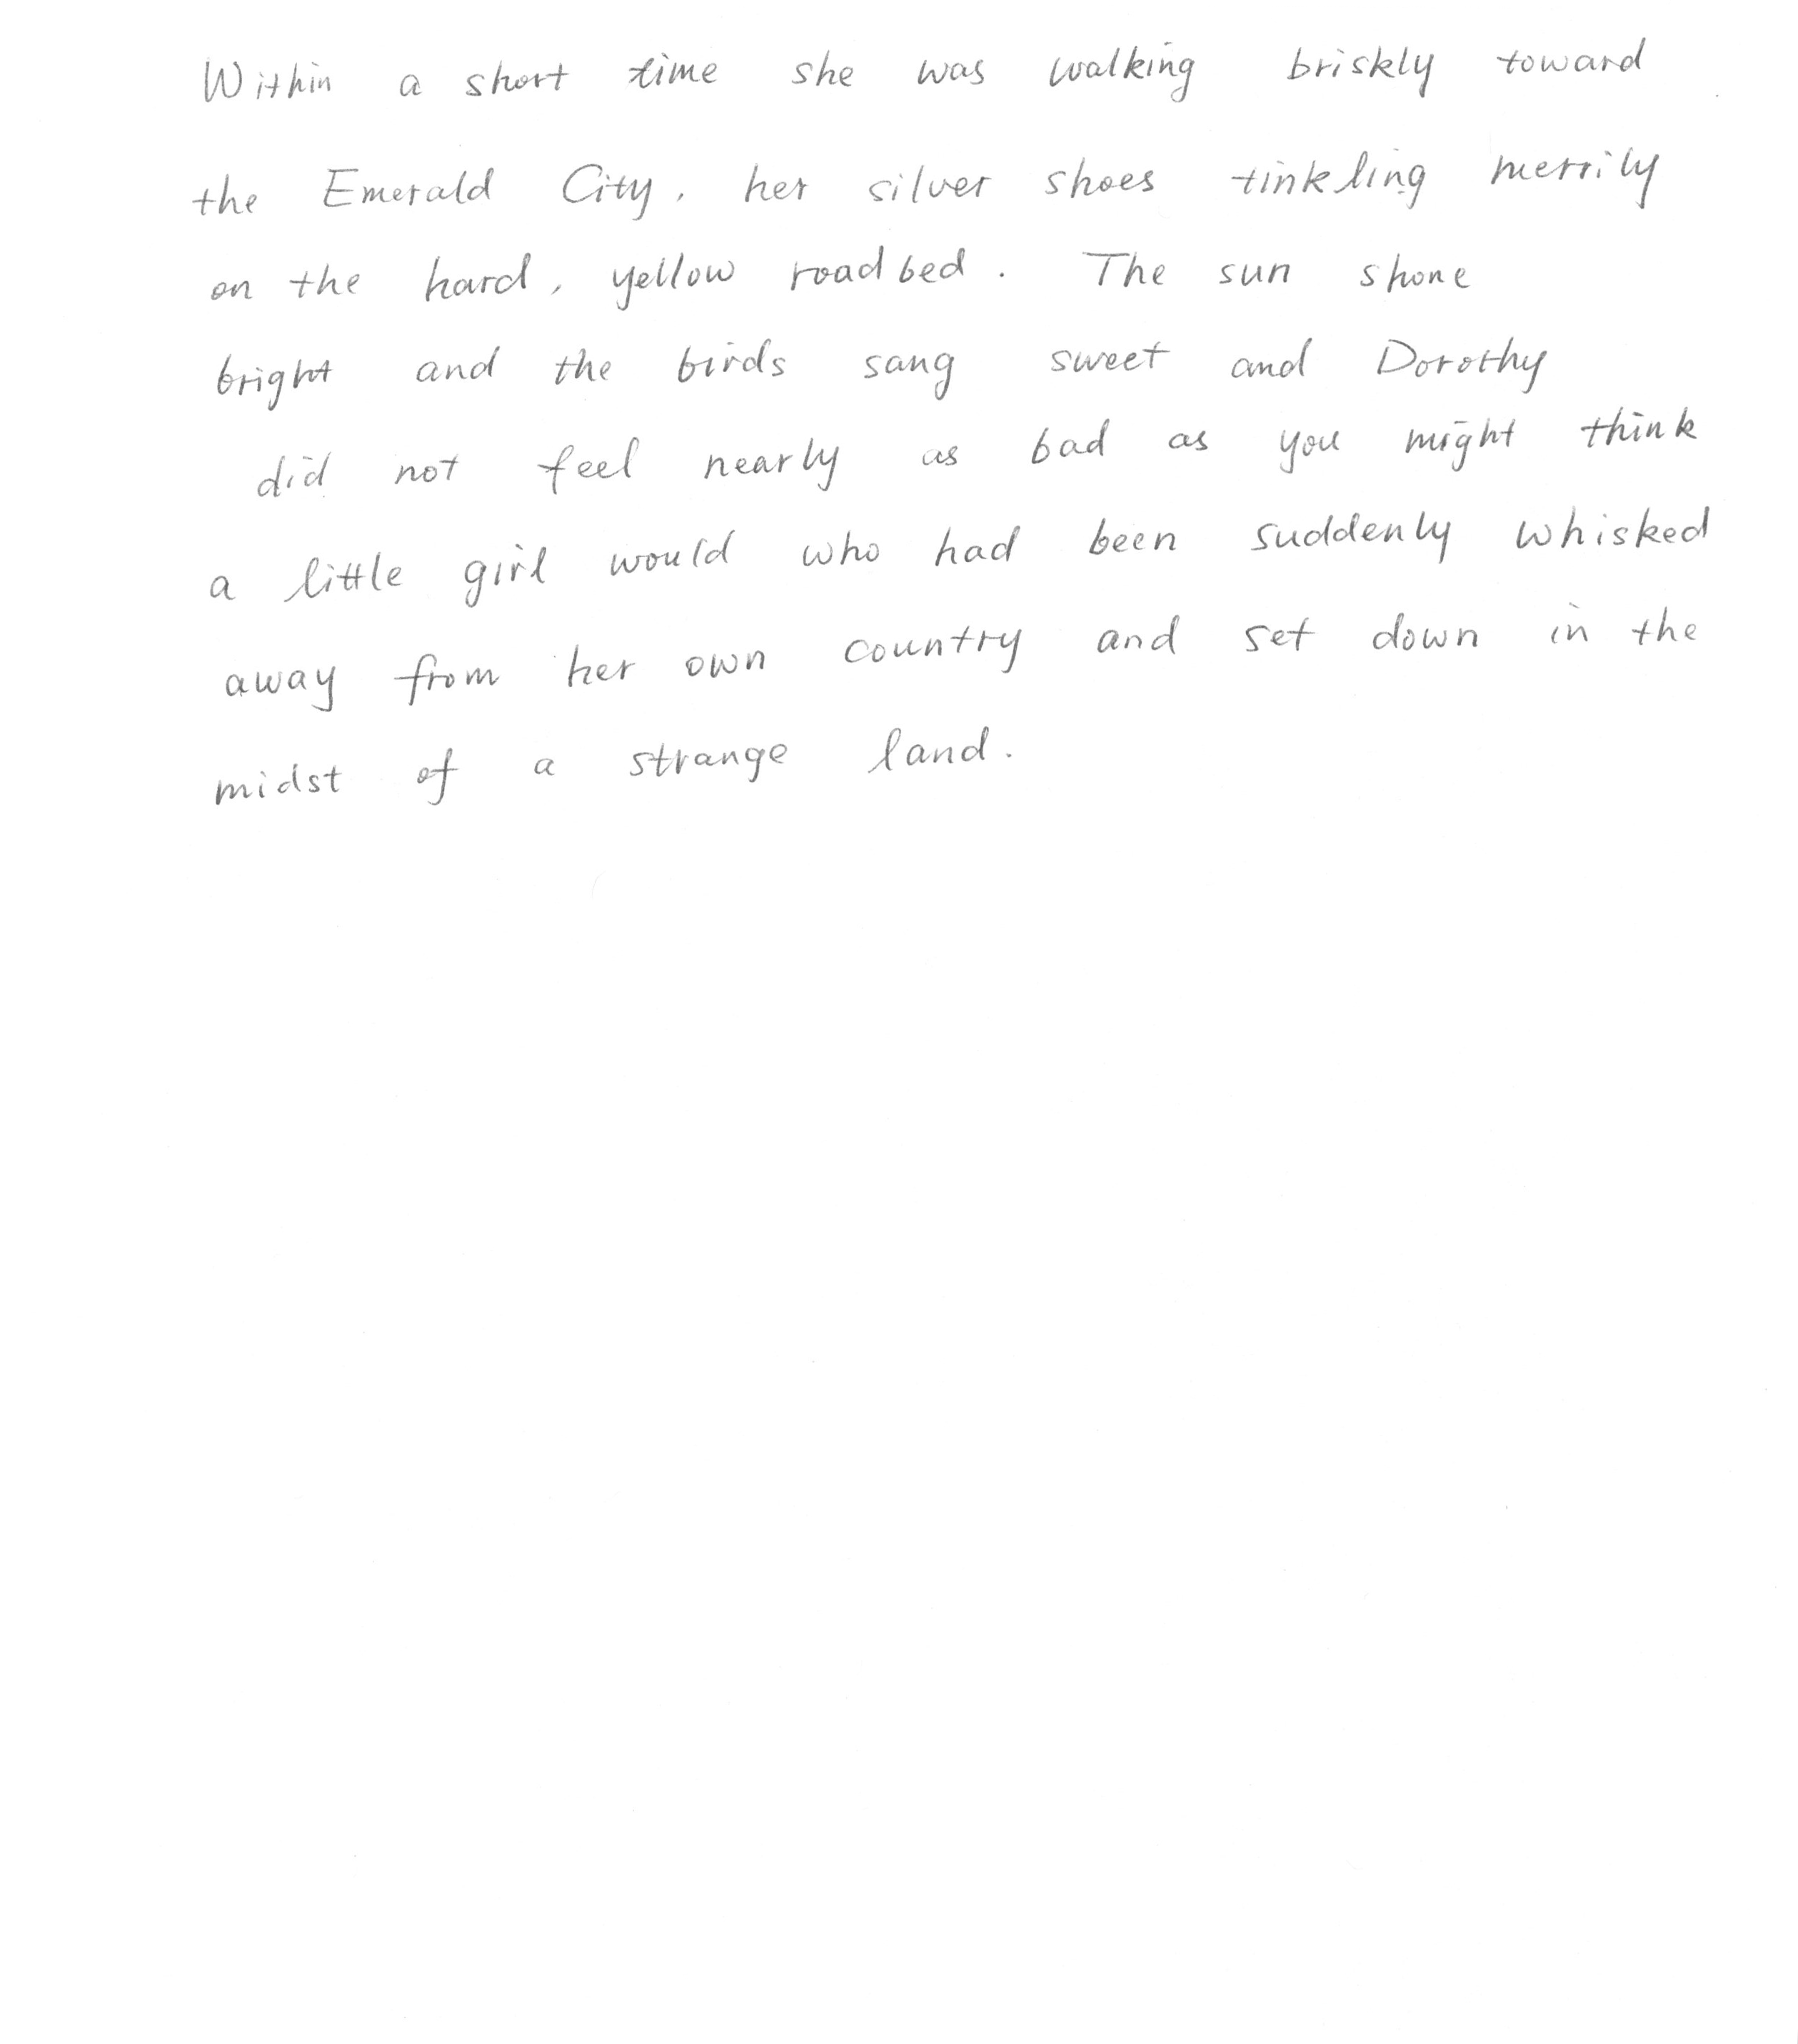 Within a short time she was walking briskly toward
the Emerald City, her silver shoes tinkling merrily
on the hard, yellow roadbed. The sun shone
bright and the birds sang sweet and Dorothy
did not feel nearly as bad as you might think
a little girl would who had been suddenly whisked
away from her own country and set down in the
midst of a strange land.